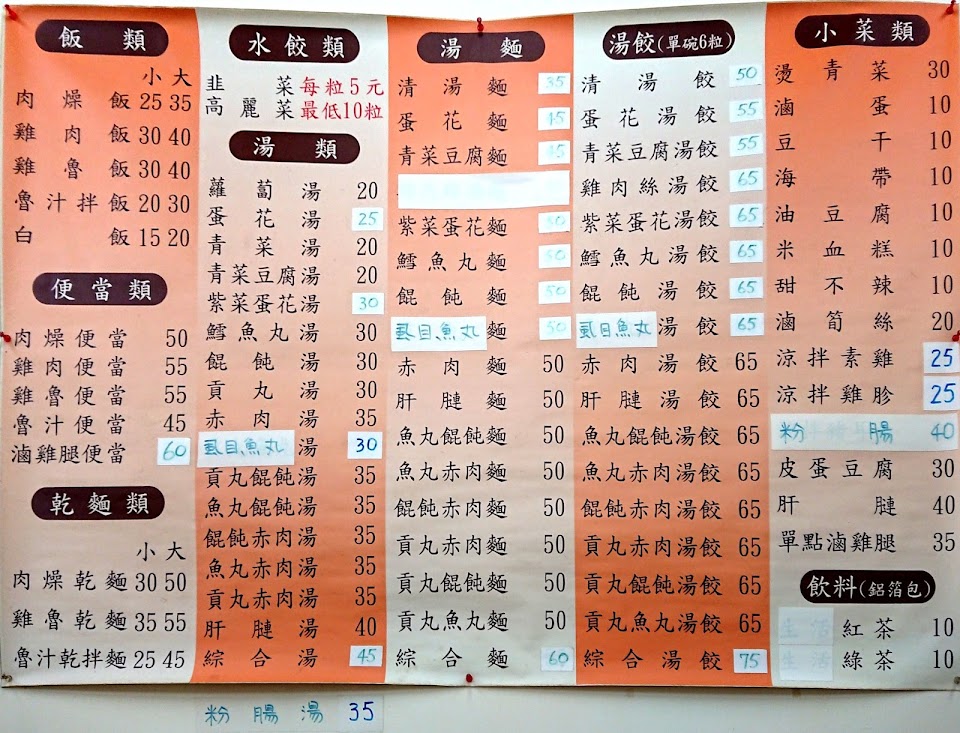 飯類
小 大
肉燥飯 25 35
雞肉飯 30 40
雞魯飯 30 40
魯汁拌飯 20 30
白飯 15 20
便當類
肉燥便當 50
雞肉便當 55
雞魯便當 55
魯汁便當 45
滷雞腿便當 60
乾麵類
小 大
肉燥乾麵 30 50
雞魯乾麵 35 55
魯汁乾拌麵 25 45
水餃類
韭菜 每粒5元
高麗菜 最低10粒
湯類
蘿蔔湯 20
蛋花湯 25
青菜湯 20
青菜豆腐湯 20
紫菜蛋花湯 30
鱈魚丸湯 30
餛飩湯 30
貢丸湯 30
赤肉湯 35
虱目魚丸湯 30
貢丸餛飩湯 35
魚丸餛飩湯 35
餛飩赤肉湯 35
魚丸赤肉湯 35
貢丸赤肉湯 35
肝腱湯 40
綜合湯 45
粉腸湯 35
湯麵
清湯麵 35
蛋花麵 45
青菜豆腐麵 45
紫菜蛋花麵 50
鱈魚丸麵 50
餛飩麵 50
虱目魚丸麵 50
赤肉麵 50
肝腱麵 50
魚丸餛飩麵 50
魚丸赤肉麵 50
餛飩赤肉麵 50
貢丸赤肉麵 50
貢丸餛飩麵 50
貢丸魚丸麵 50
綜合麵 60
湯餃(單碗6粒)
清湯餃 50
蛋花湯餃 55
青菜豆腐湯餃 55
雞肉絲湯餃 65
紫菜蛋花湯餃 65
鱈魚丸湯餃 65
餛飩湯餃 65
虱目魚丸湯餃 65
赤肉湯餃 65
肝腱湯餃 65
魚丸餛飩湯餃 65
魚丸赤肉湯餃 65
餛飩赤肉湯餃 65
貢丸赤肉湯餃 65
貢丸餛飩湯餃 65
貢丸魚丸湯餃 65
綜合湯餃 75
小菜類
燙青菜 30
滷蛋 10
豆干 10
海帶 10
油豆腐 10
米血糕 10
甜不辣 10
滷筍絲 20
涼拌素雞 25
涼拌雞胗 25
粉腸 40
皮蛋豆腐 30
肝腱 40
單點滷雞腿 35
飲料(鋁箔包)
生活紅茶 10
生活綠茶 10